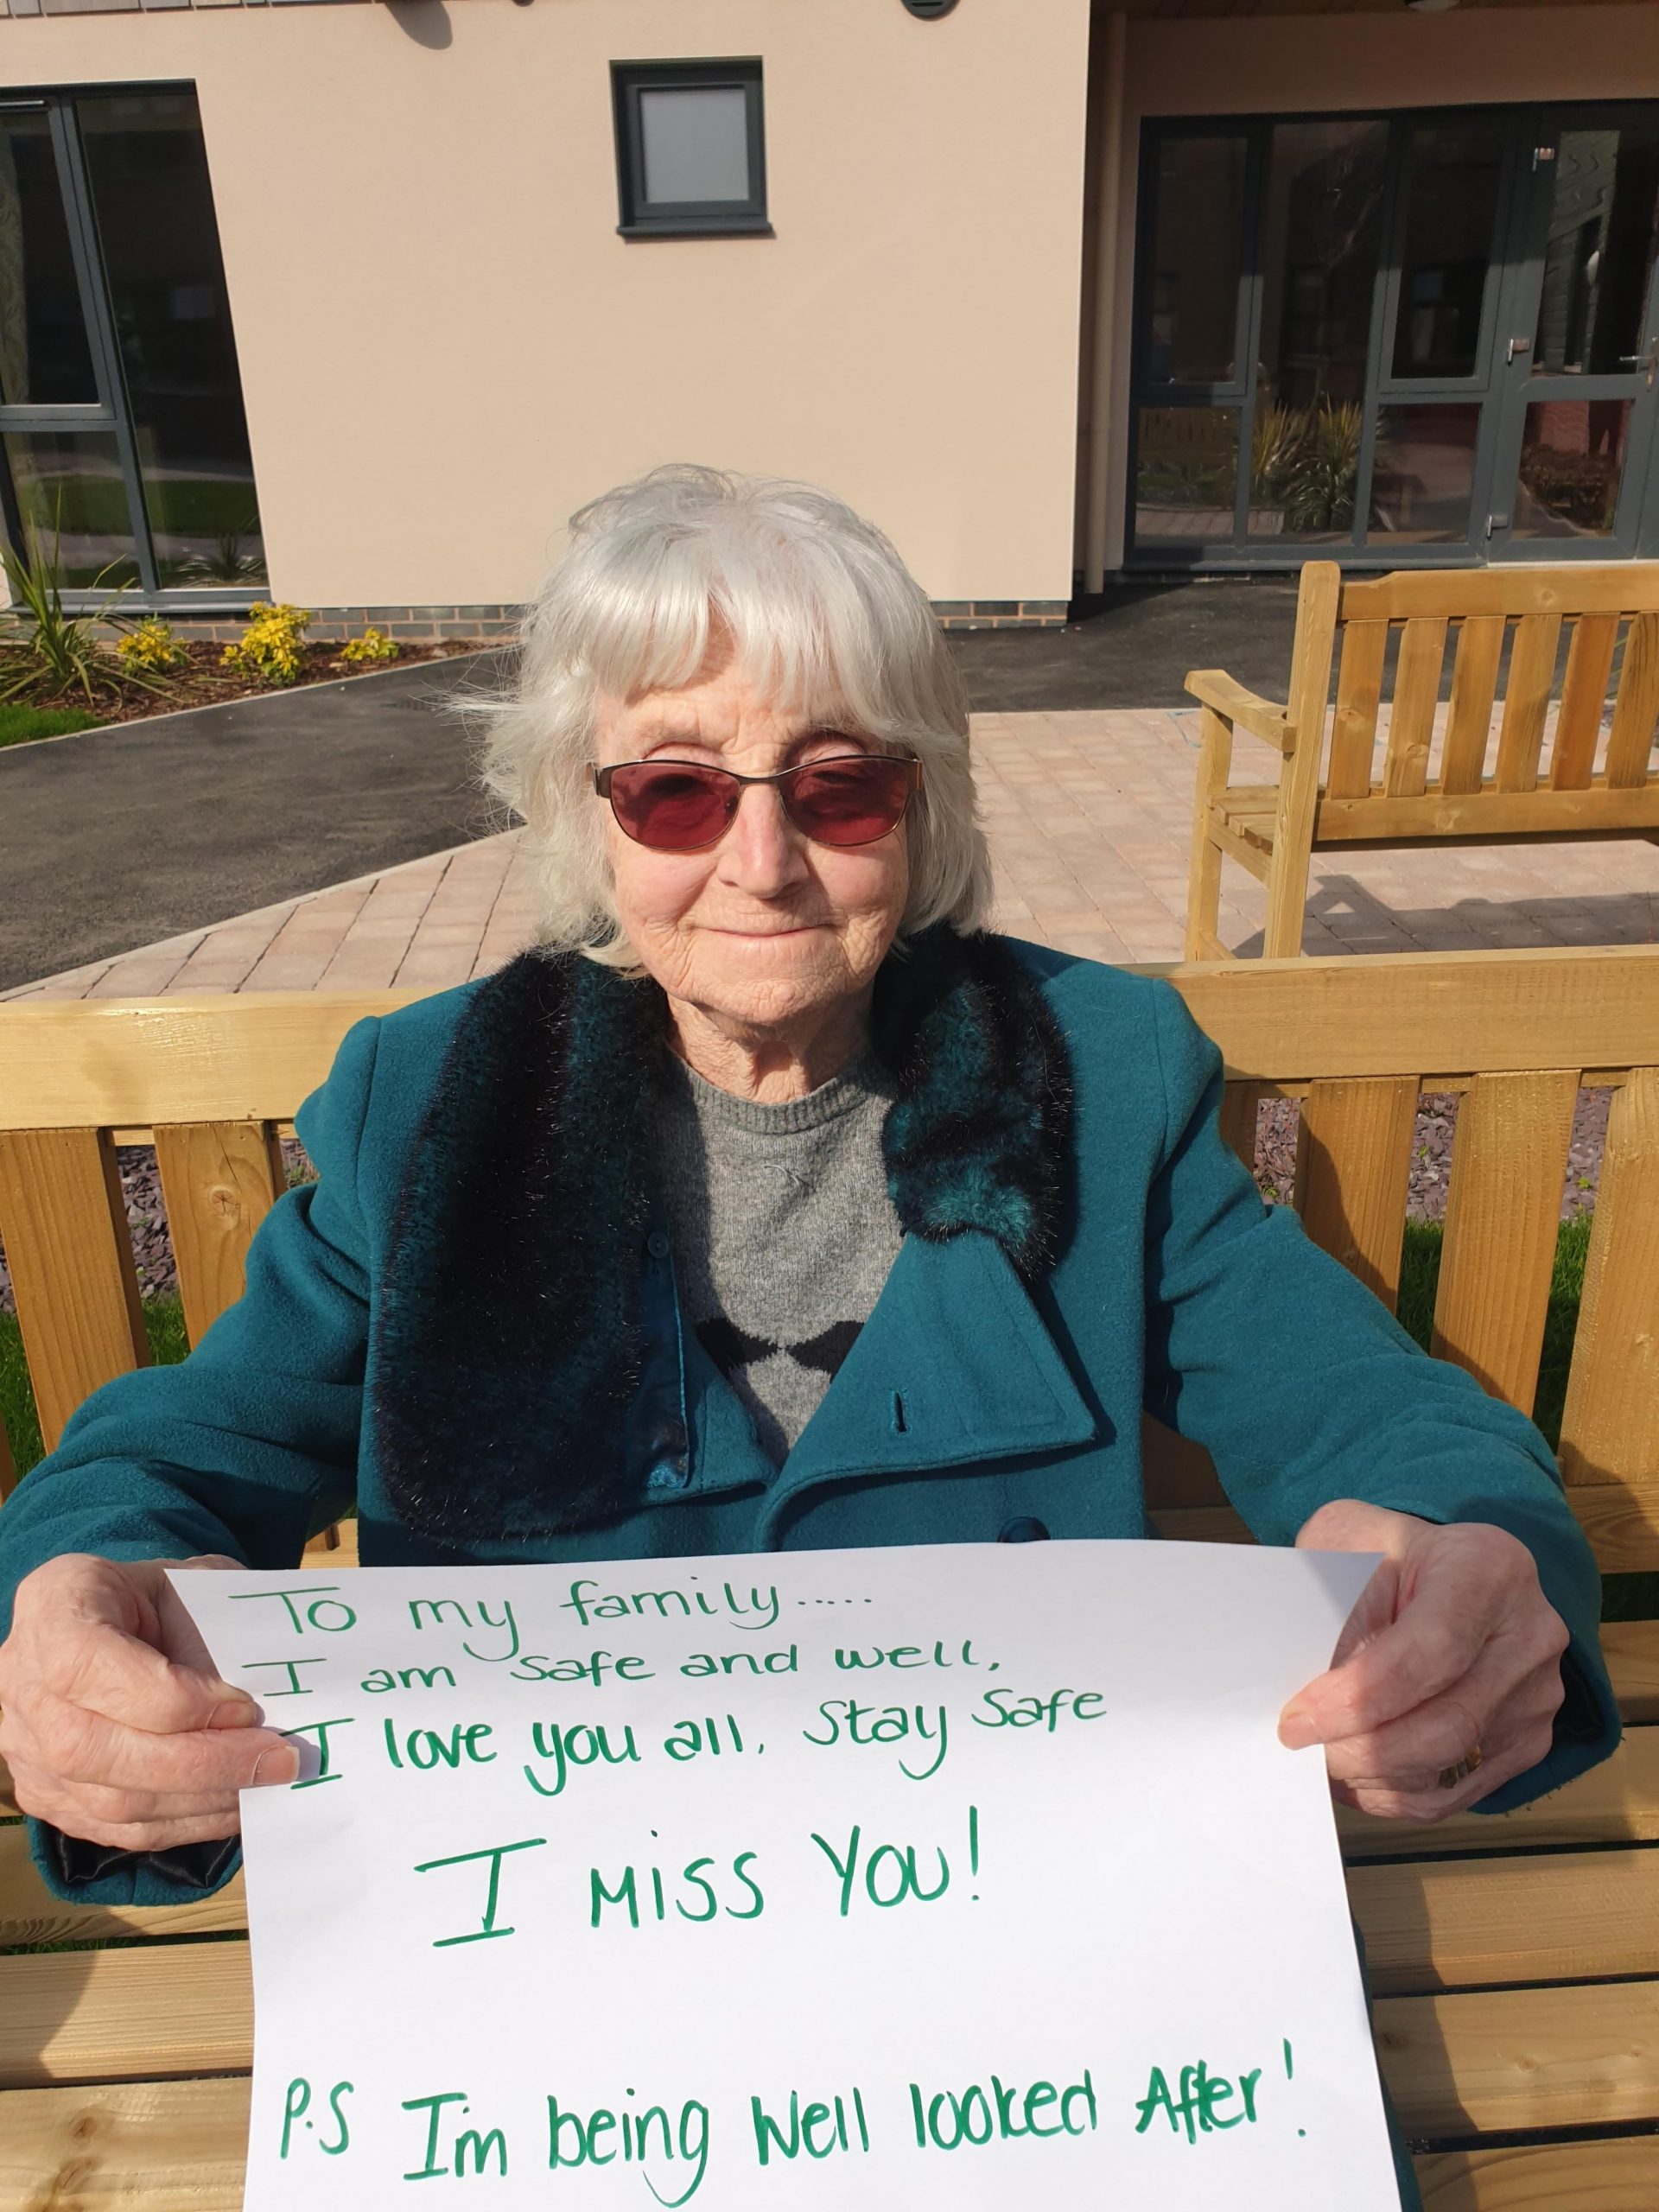 To my family.....
I am safe and well,
I love you all, Stay Safe
I MISS YOU!
P.S I'm being Well looked After!